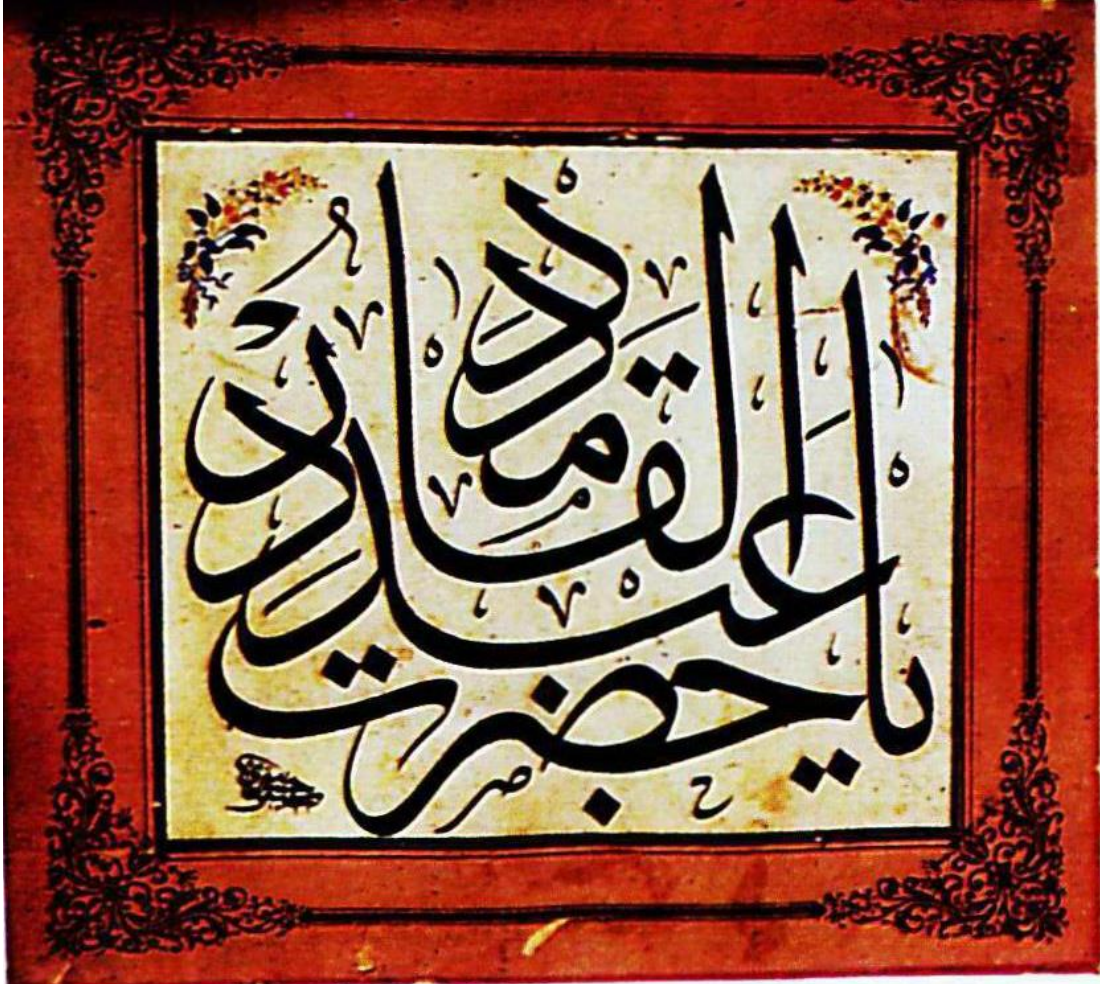 يا حضرت عبد القادر مدد